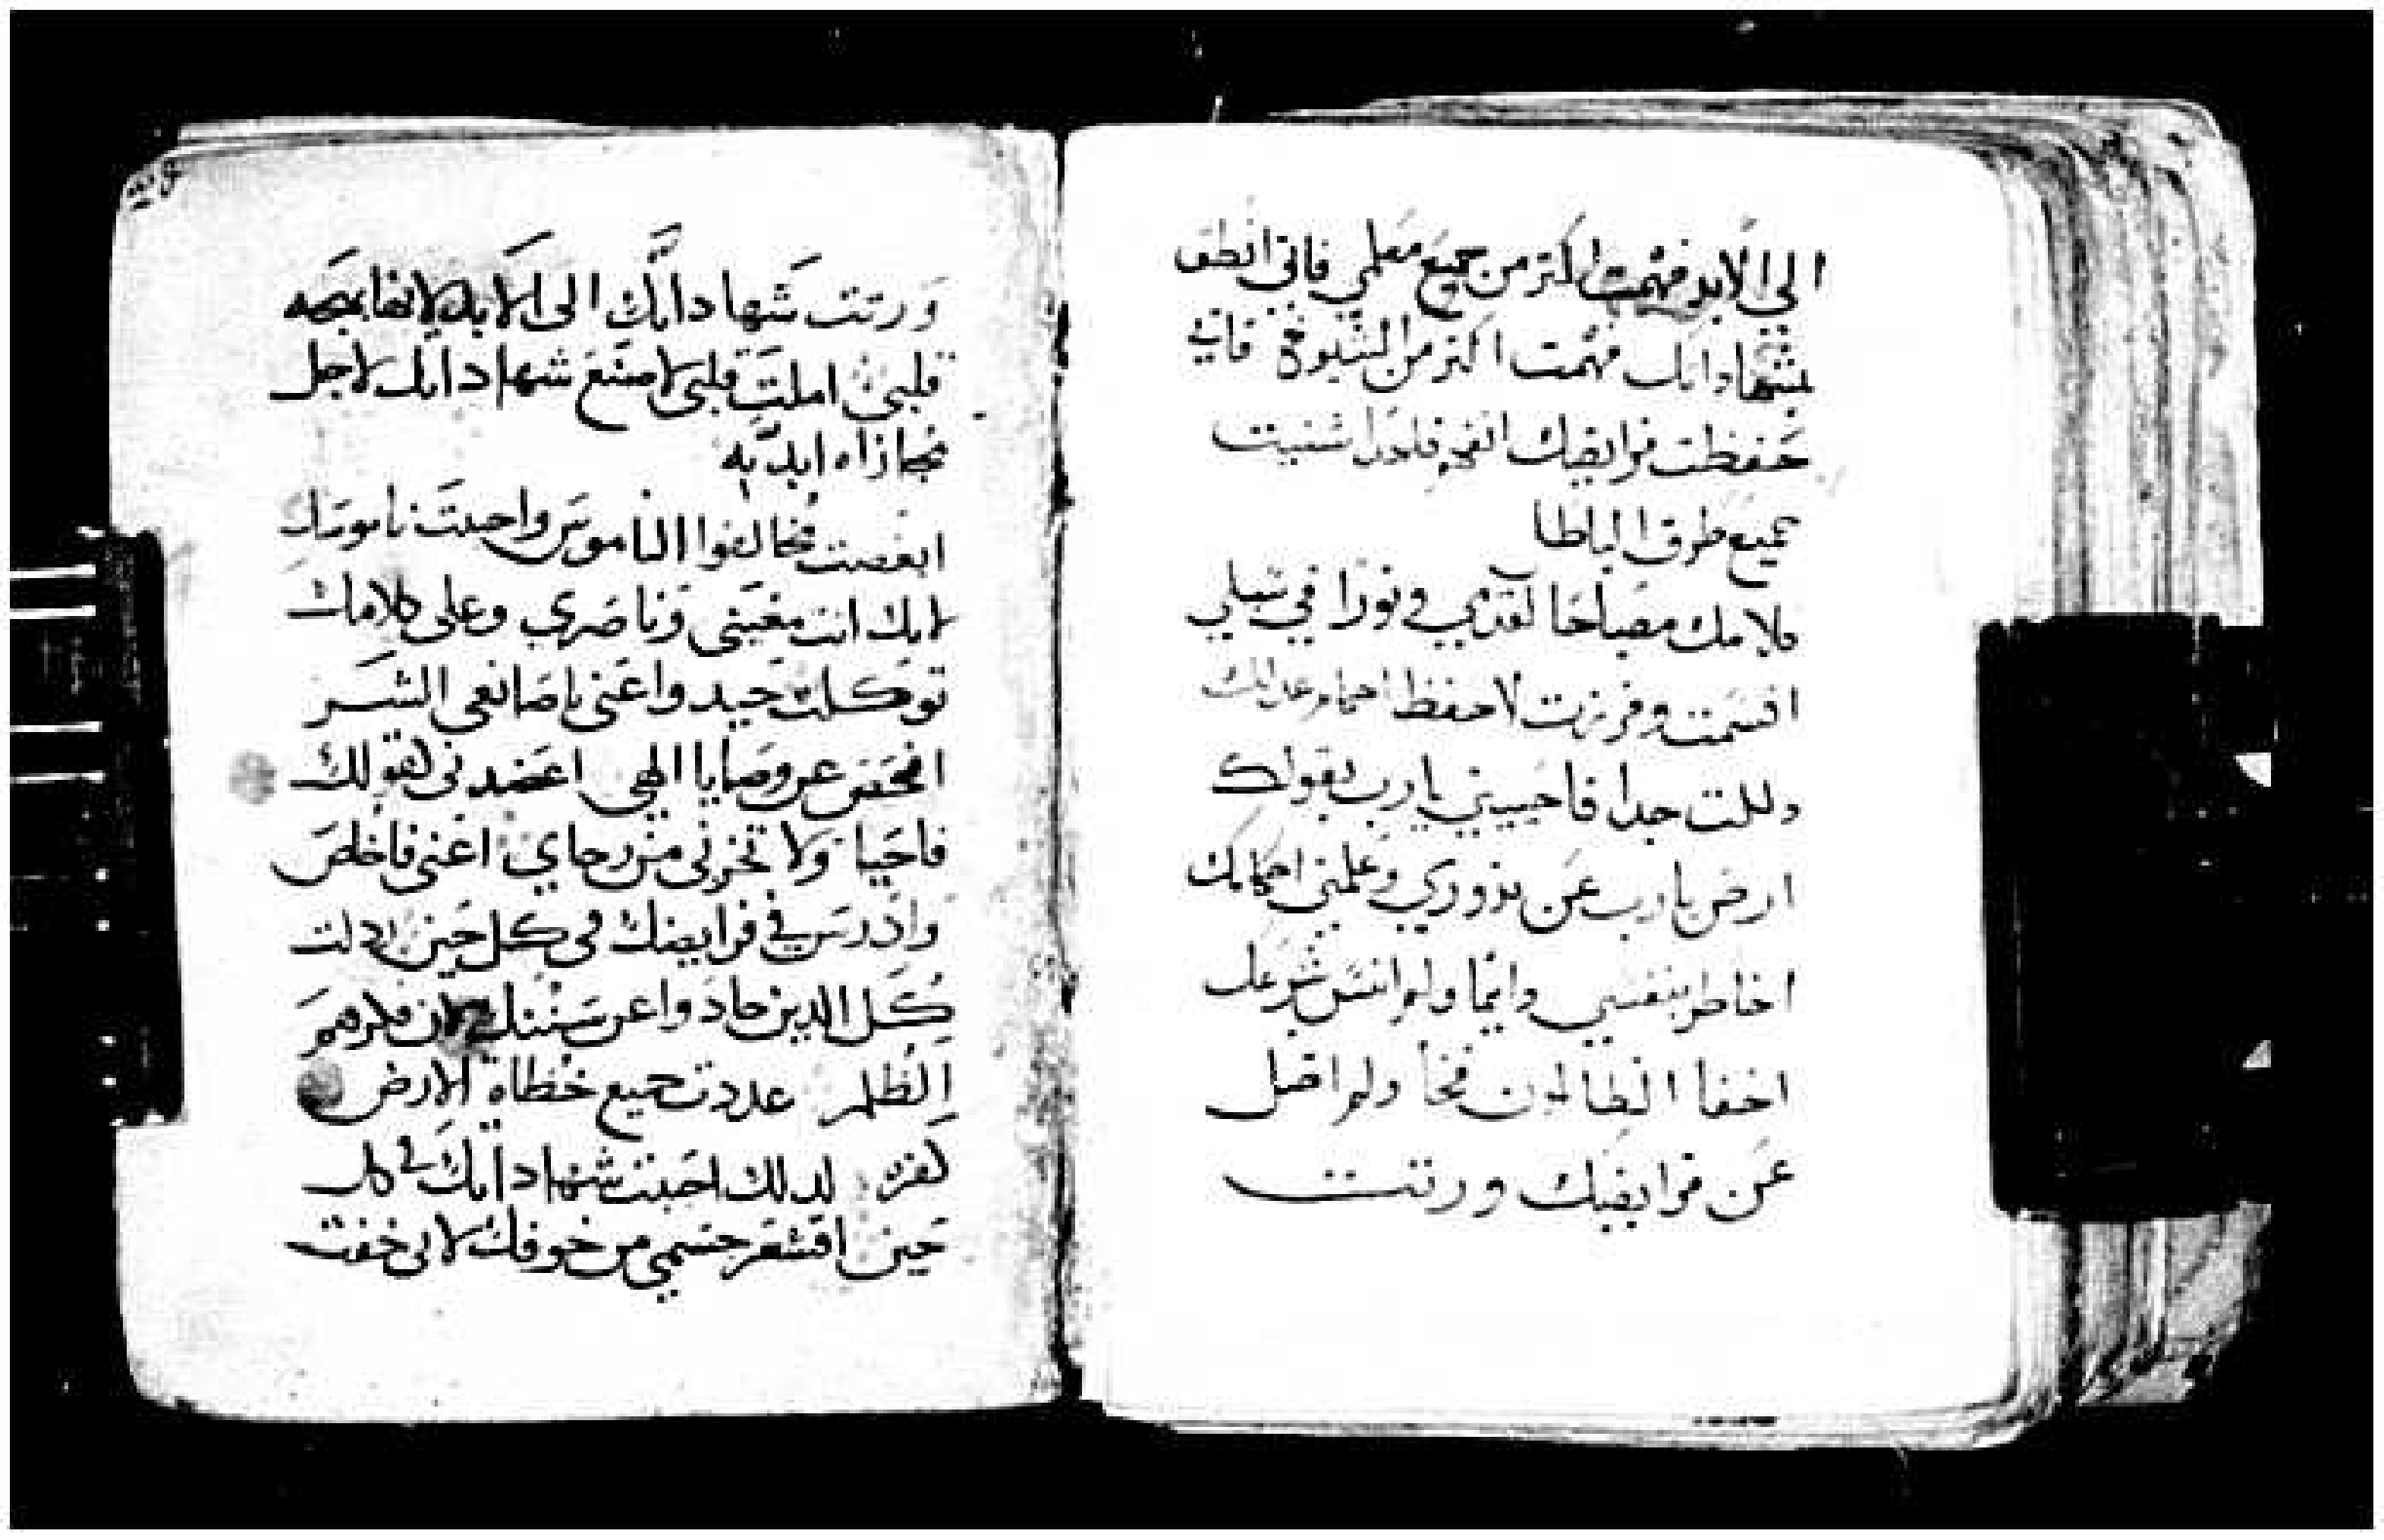 الى الابد فهمت اكتر من جميع معلمي فاني انطق
بشهاداتك فهمت اكتر من الشيوخ فاني
حفظت فرايضك
جميع طرق الباطا
كلامك مصباحا لقدمي ونورا في سبلي
اقسمت وفرزت لاحفظ احكام عدلك
دللت جدا فاحييني يارب بقولك
ارض يارب عن نزوري وعلمني احكامك
اخاطر بنفسي دايما ولم انس شرعك
اخفا الظالمون فخا ولم اضل
عن فرايضك ورتت
ورتت شهاداتك الى الابد لانها بهجه
قلبي املت قلبي لاصنع شهاداتك لاجل
مجازاه ابديه
ابغضت مخالفوا الناموس واحببت ناموسك
لانك انت مغيثي وناصري وعلى كلامك
توكلت حيدوا عني ياصانعي الشر
افحص عن وصايا الهي اعضدني لقولك
فاحيا ولا تخزني من رجاي اعني فاخلص
وادرس في فرايضك في كل حين رذلت
كل الدين حادوا عن سننك لان فكرهم
الظلم عددت جميع خطاة الارض
كفره لدلك احببت شهاداتك في كل
حين اقشعر جسمي من خوفك لاني خفت